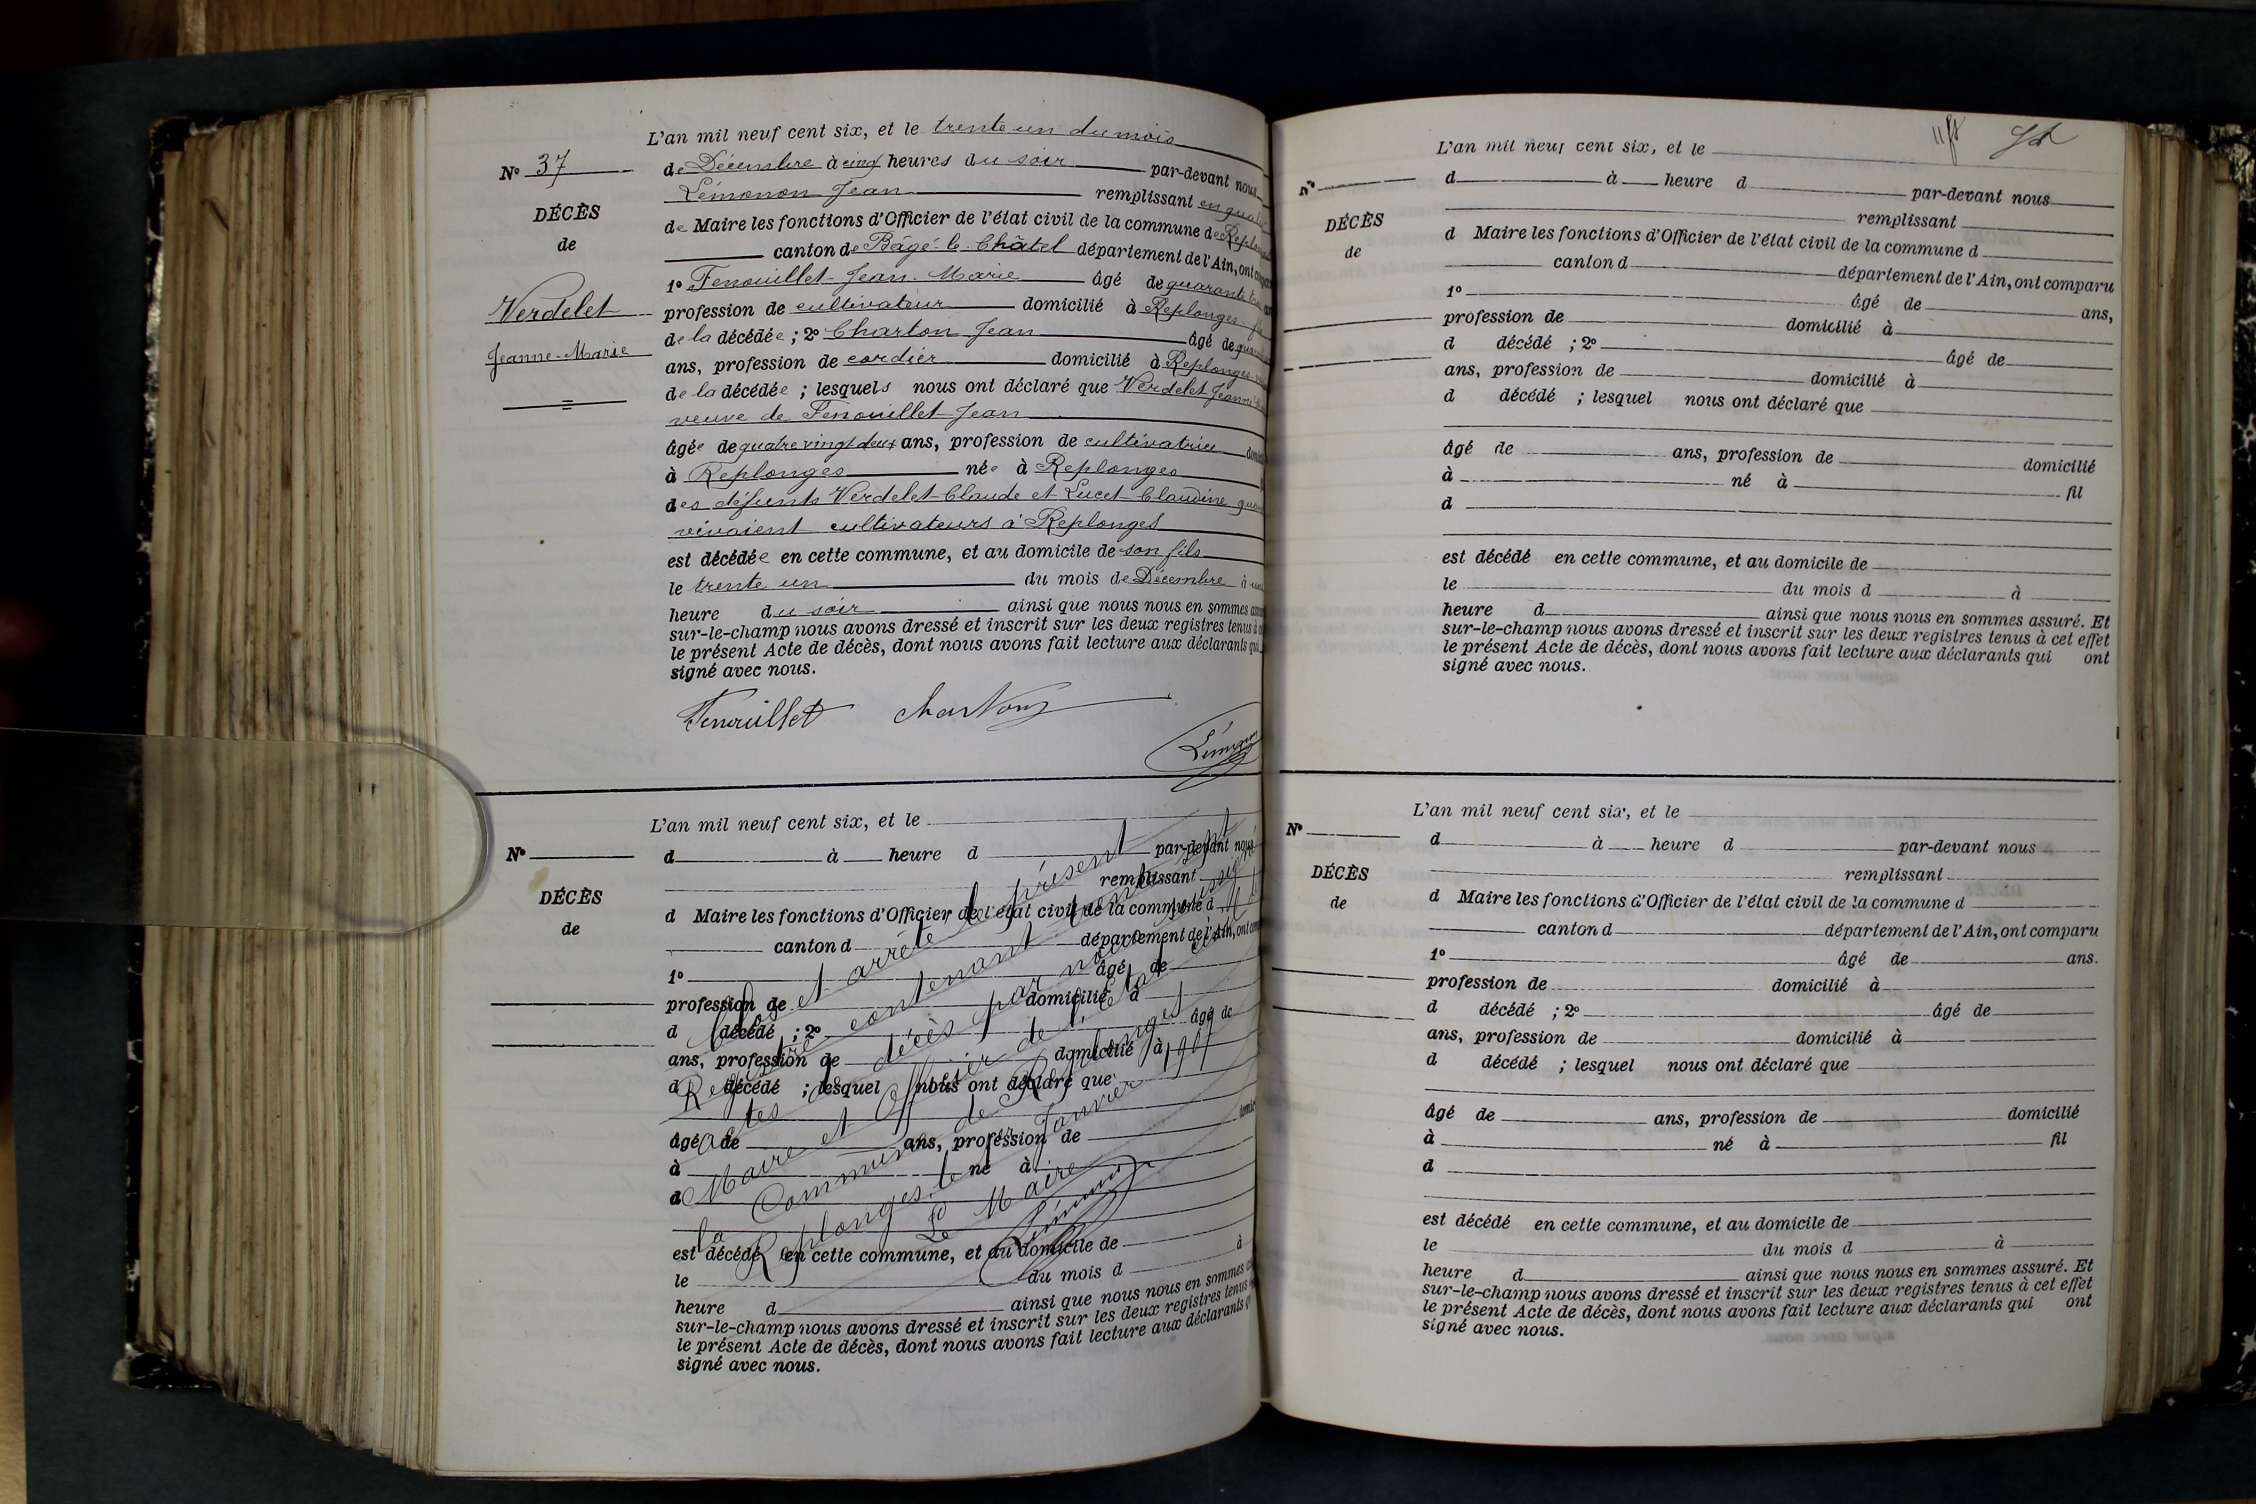 L'an mil neuf cent six, et le trente un du mois
de Décembre à cinq heures du soir par-devant nous
Lémonon Jean remplissant en
de Maire les fonctions d'Officier de l'état civil de la commune de
canton de Bâgé-le-Châtel département de l'Ain, ont
1o Fenouillet Jean-Marie âgé de quarante
profession de cultivateur domicilié à Replonges
de la décédée ; 2o Charton Jean âgé de
ans, profession de cordier domicilié à Replonges
de la décédée ; lesquels nous ont déclaré que Verdelet Jeanne
veuve de Fenouillet Jean
âgée de quatre vingt deux ans, profession de cultivatrice
à Replonges née à Replonges
des défunts Verdelet Claude et Lucet Claudine
vivaient cultivateurs à Replonges
est décédée en cette commune, et au domicile de son fils
le trente un du mois de Décembre à
heure du soir ainsi que nous nous en sommes
sur-le-champ nous avons dressé et inscrit sur les deux registres tenus à
le présent Acte de décès, dont nous avons fait lecture aux déclarants
signé avec nous.
No 37
DÉCÈS
de
Verdelet
Jeanne-Marie
Fenouillet Charton
Lémonon
L'an mil neuf cent six, et le
d à heure d par-devant nous
remplissant
d Maire les fonctions d'Officier de l'état civil de la commune d
canton d département de l'Ain, ont
1o âgé de
profession de domicilié à
d décédé ; 2o âgé de
ans, profession de domicilié à
d décédé ; lesquel nous ont déclaré que
âgé de ans, profession de
à né à
d
est décédé en cette commune, et au domicile de
le du mois d à
heure d ainsi que nous nous en sommes
sur-le-champ nous avons dressé et inscrit sur les deux registres tenus
le présent Acte de décès, dont nous avons fait lecture aux déclarants
signé avec nous.
No
DÉCÈS
de
Clos et arrêté le présent
Registre contenant
actes de décès par nous
Maire et Officier de l'Etat civil
la Commune de Replonges
Replonges, le 1er Janvier 1907
Le Maire
Lémonon
L'an mil neuf cent six, et le
d à heure d par-devant nous
remplissant
d Maire les fonctions d'Officier de l'état civil de la commune d
canton d département de l'Ain, ont comparu
1o âgé de ans,
profession de domicilié à
d décédé ; 2o âgé de
ans, profession de domicilié à
d décédé ; lesquel nous ont déclaré que
âgé de ans, profession de domicilié
à né à fil
d
est décédé en cette commune, et au domicile de
le du mois d à
heure d ainsi que nous nous en sommes assuré. Et
sur-le-champ nous avons dressé et inscrit sur les deux registres tenus à cet effet
le présent Acte de décès, dont nous avons fait lecture aux déclarants qui ont
signé avec nous.
No
DÉCÈS
de
L'an mil neuf cent six, et le
d à heure d par-devant nous
remplissant
d Maire les fonctions d'Officier de l'état civil de la commune d
canton d département de l'Ain, ont comparu
1o âgé de ans.
profession de domicilié à
d décédé ; 2o âgé de
ans, profession de domicilié à
d décédé ; lesquel nous ont déclaré que
âgé de ans, profession de domicilié
à né à fil
d
est décédé en cette commune, et au domicile de
le du mois d à
heure d ainsi que nous nous en sommes assuré. Et
sur-le-champ nous avons dressé et inscrit sur les deux registres tenus à cet effet
le présent Acte de décès, dont nous avons fait lecture aux déclarants qui ont
signé avec nous.
No
DÉCÈS
de